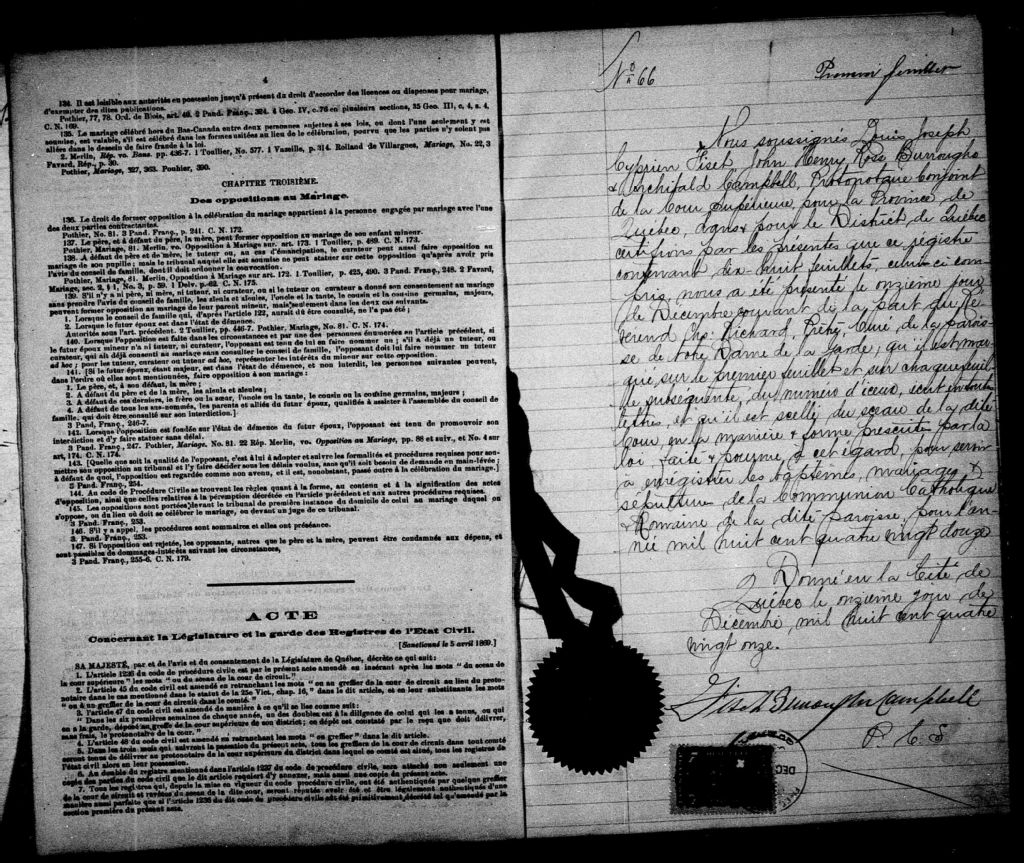 4
134. Il est loisible aux autorités en possession jusqu'à présent du droit d'accorder des licences ou dispenses pour mariage,
d'exempter des dites publications.
Pothier, 77, 78. Ord. de Blois, art. 40. 2 Pand. Franç., 324. 4 Geo. IV, c. 76 en plusieurs sections, 35 Geo. III, c. 4, s. 4.
C. N. 169.
135. Le mariage célébré hors du Bas-Canada entre deux personnes sujettes à ses lois, ou dont l'une seulement y est
soumise, est valable, s'il est célébré dans les formes usitées au lieu de la célébration, pourvu que les parties n'y soient pas
allées dans le dessein de faire fraude à la loi.
2. Merlin, Rép. vo. Bans. pp. 436-7. 1 Toullier, No. 577. 1 Vazeille, p. 314. Rolland de Villargues, Mariage, No. 22, 3
Favard, Rép., p. 30.
Pothier, Mariage, 327, 363. Pouhier, 390.
CHAPITRE TROISIÈME.
Des oppositions au Mariage.
136. Le droit de former opposition à la célébration du mariage appartient à la personne engagée par mariage avec l'une
des deux parties contractantes.
Pothier, No. 81. 3 Pand. Franç., p. 241. C. N. 172.
137. Le père, et à défaut du père, la mère, peut former opposition au mariage de son enfant mineur.
Pothier, Mariage, 81. Merlin, vo. Opposition à Mariage sur. art. 173. 1 Toullier, p. 489. C. N. 173.
138. A défaut de père et de mère, le tuteur ou, au cas d'émancipation, le curateur peut aussi faire opposition au
mariage de son pupille; mais le tribunal auquel est soumise ne peut statuer sur cette opposition qu'après avoir pris
l'avis du conseil de famille, dont il doit ordonner la convocation.
Pothier, Mariage, 81. Merlin, Opposition à Mariage sur art. 172. 1 Toullier, p. 425, 490. 3 Pand. Franç., 248. 2 Favard,
Mariage, sec. 2, § 1, No. 3, p. 59. 1 Delv. p. 62. C. N. 175.
139. S'il n'y a ni père, ni mère, ni tuteur, ni curateur, ou si le tuteur ou curateur a donné son consentement au mariage
sans prendre l'avis du conseil de famille, les aïeuls et aïeules, l'oncle et la tante, le cousin et la cousine germains, majeurs,
peuvent former opposition au mariage de leur parent mineur, mais seulement dans les deux cas suivants:
1. Lorsque le conseil de famille qui, d'après l'article 122, aurait dû être consulté, ne l'a pas été;
2. Lorsque le futur époux est dans l'état de démence.
Autorités sous l'art. précédent. 2 Toullier, pp. 446-7. Pothier, Mariage, No. 81. C. N. 174.
140. Lorsque l'opposition est faite dans les circonstances et par une des personnes énumérées en l'article précédent, si
le futur époux mineur n'a ni tuteur, ni curateur, l'opposant est tenu de lui en faire nommer un; s'il a déjà un tuteur, ou
curateur, qui ait déjà consenti au mariage sans consulter le conseil de famille, l'opposant doit lui faire nommer un tuteur
ad hoc; pour les tuteur, curateur ou tuteur ad hoc, représenter les intérêts du mineur sur cette opposition.
141. [Si le futur époux, étant majeur, est dans l'état de démence, et non interdit, les personnes suivantes peuvent,
dans l'ordre où elles sont mentionnées, faire opposition à son mariage:
1. Le père, et, à son défaut, la mère;
2. A défaut du père et de la mère, les aïeuls et aïeules;
3. A défaut de ces derniers, le frère ou la sœur, l'oncle ou la tante, le cousin ou la cousine germains, majeurs;
4. A défaut de tous les sus-nommés, les parents et alliés du futur époux, qualifiés à assister à l'assemblée du conseil de
famille, qui doit être consulté sur son interdiction.]
3 Pand. Franç., 246-7.
142. Lorsque l'opposition est fondée sur l'état de démence du futur époux, l'opposant est tenu de promouvoir son
interdiction et d'y faire statuer sans délai.
3 Pand. Franç., 247. Pothier, Mariage, No. 81. 22 Rép. Merlin, vo. Opposition au Mariage, pp. 88 et suiv., et No. 4 sur
art. 174. C. N. 174.
143. [Quelle que soit la qualité de l'opposant, c'est à lui à adopter et suivre les formalités et procédures requises pour sou-
mettre son opposition au tribunal et l'y faire décider sous les délais voulus, sans qu'il soit besoin de demande en main-levée;
à défaut de quoi, l'opposition est regardée comme non avenue, et il est, nonobstant, passé outre à la célébration du mariage.]
3 Pand. Franç., 254.
144. Au code de Procédure Civile se trouvent les règles quant à la forme, au contenu et à la signification des actes
d'opposition, ainsi que celles relatives à la péremption décrétée en l'article précédent et aux autres procédures requises.
145. Les oppositions sont portées devant le tribunal de première instance du domicile de celui au mariage duquel on
s'oppose, ou du lieu où doit se célébrer le mariage, ou devant un juge de ce tribunal.
3 Pand. Franç., 253.
146. S'il y a appel, les procédures sont sommaires et elles ont préséance.
3 Pand. Franç., 253.
147. Si l'opposition est rejetée, les opposants, autres que le père et la mère, peuvent être condamnés aux dépens, et
sont passibles de dommages-intérêts suivant les circonstances.
3 Pand. Franç., 255-6. C. N. 179.
ACTE
Concernant la Législature et la garde des Registres de l'Etat Civil.
[Sanctionné le 5 avril 1869.]
SA MAJESTÉ, par et de l'avis et du consentement de la Législature de Québec, décrète ce qui suit:
1. L'article 1236 du code de procédure civile est par le présent acte amendé en insérant après les mots "du sceau de
la cour supérieure" les mots "ou du sceau de la cour de circuit."
2. L'article 45 du code civil est amendé en retranchant les mots "ou au greffier de la cour de circuit au lieu du proto-
notaire dans le cas mentionné dans le statut de la 25e Vict., chap. 16," dans le dit article, et en leur substituant les mots
"ou à un greffier de la cour de circuit dans le comté."
3. L'article 47 du code civil est amendé de manière à ce qu'il se lise comme suit:
"Dans les six premières semaines de chaque année, un des doubles est à la diligence de celui qui les a tenus, ou qui
en a la garde, déposé au greffe de la cour supérieure de son district; ce dépôt est constaté par le reçu que doit délivrer,
sans frais, le protonotaire de la cour."
4. L'article 48 du code civil est amendé en retranchant les mots "ou greffier" dans le dit article.
5. Dans les trois mois qui suivront la passation du présent acte, tous les greffiers de la cour de circuit dans tout comté
seront tenus de délivrer au protonotaire de la cour supérieure du district dans lequel ce comté est situé, tous les registres de
l'état civil alors en leur possession.
6. Au double du registre mentionné dans l'article 1237 du code de procédure civile, sera attaché non seulement une
copie des parties du code civil que le dit article requiert d'y annexer, mais aussi une copie du présent acte.
7. Tous les registres qui, depuis la mise en vigueur du code de procédure civile, ont été authentiqués par quelque greffier
de la cour de circuit et revêtus du sceau de la dite cour, seront réputés avoir été et être légalement authentiqués d'une
manière aussi parfaite que si l'article 1236 du dit code de procédure civile eût été primitivement décrété tel qu'amendé par la
section première du présent acte.
No 66
Premier feuillet
Nous soussignés Louis Joseph
Cyprien Fiset John Henry Ross Burroughs
& Archibald Campbell, Protonotaire Conjoint
de la Cour Supérieure, pour la Province de
Québec, dans & pour le District de Québec
certifions par les présentes que ce registre
contenant dix-huit feuillets, celui-ci com-
pris, nous a été présenté le onzième jour
de Décembre courant de la part du Ré-
vérend Jhp. Richard, Prêtre, Curé, de la parois-
se de Notre Dame de la Garde; qu'il est mar-
qué, sur le premier feuillet et sur chaque feuil-
let subséquent, du numéro d'iceux, écrit en toutes
lettres, et qu'il est scellé du sceau de la dite
Cour en la manière & forme prescrite par la
loi, faite & pourvue à cet égard, pour servir
à enregistrer les baptêmes, mariages &
sépulture de la Communion Catholique
& Romaine de la dite paroisse, pour l'an-
née mil huit cent quatre vingt douze
Donné en la Cité de
Québec le onzième jour de
Décembre, mil huit cent quatre
vingt onze.
Fiset Burroughs Campbell
P. C. S
DEC